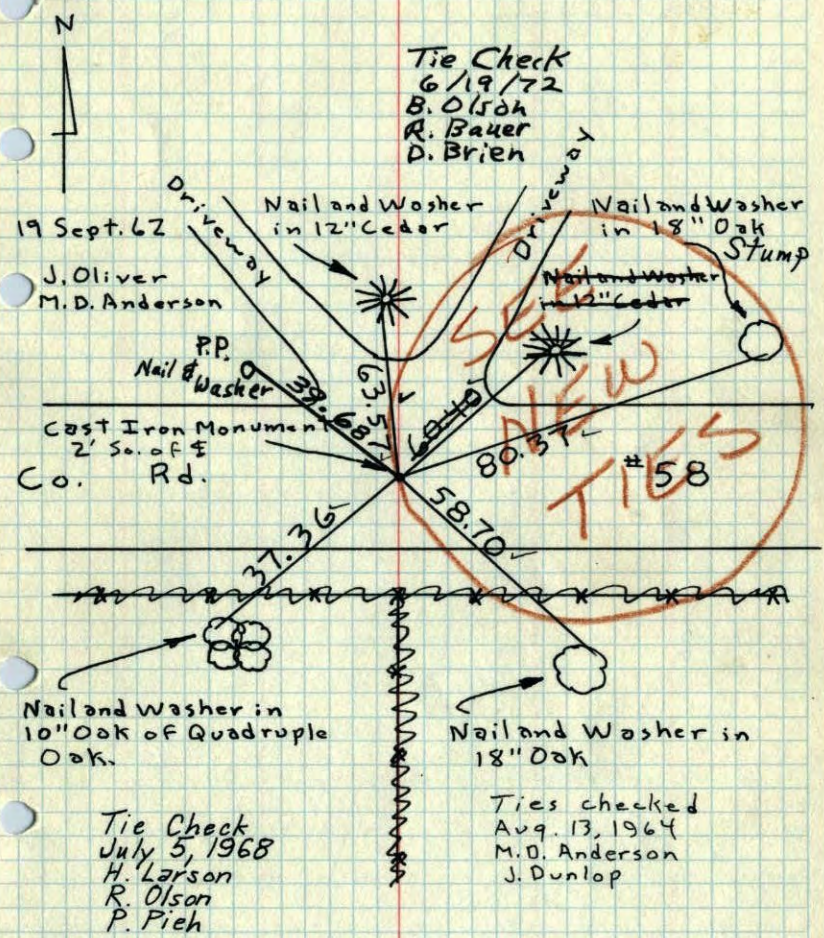 N
Tie Check
6/19/72
B. Olson
R. Bauer
D. Brien
19 Sept. 62
J. Oliver
M.D. Anderson
Driveway
Nail and Washer
in 12" Cedar
Driveway
Nail and Washer
in 18" Oak
Stump
Nail and Washer
in 12" Cedar
SEE
NEW
TIES
P.P.
Nail &
Washer
39.68
63.57
60.40
80.37
#58
Cast Iron Monument
2' So. of ℄
Co. Rd.
37.36
58.70
Nail and Washer in
10" Oak of Quadruple
Oak.
Nail and Washer in
18" Oak
Tie Check
July 5, 1968
H. Larson
R. Olson
P. Pieh
Ties checked
Aug. 13, 1964
M.D. Anderson
J. Dunlop